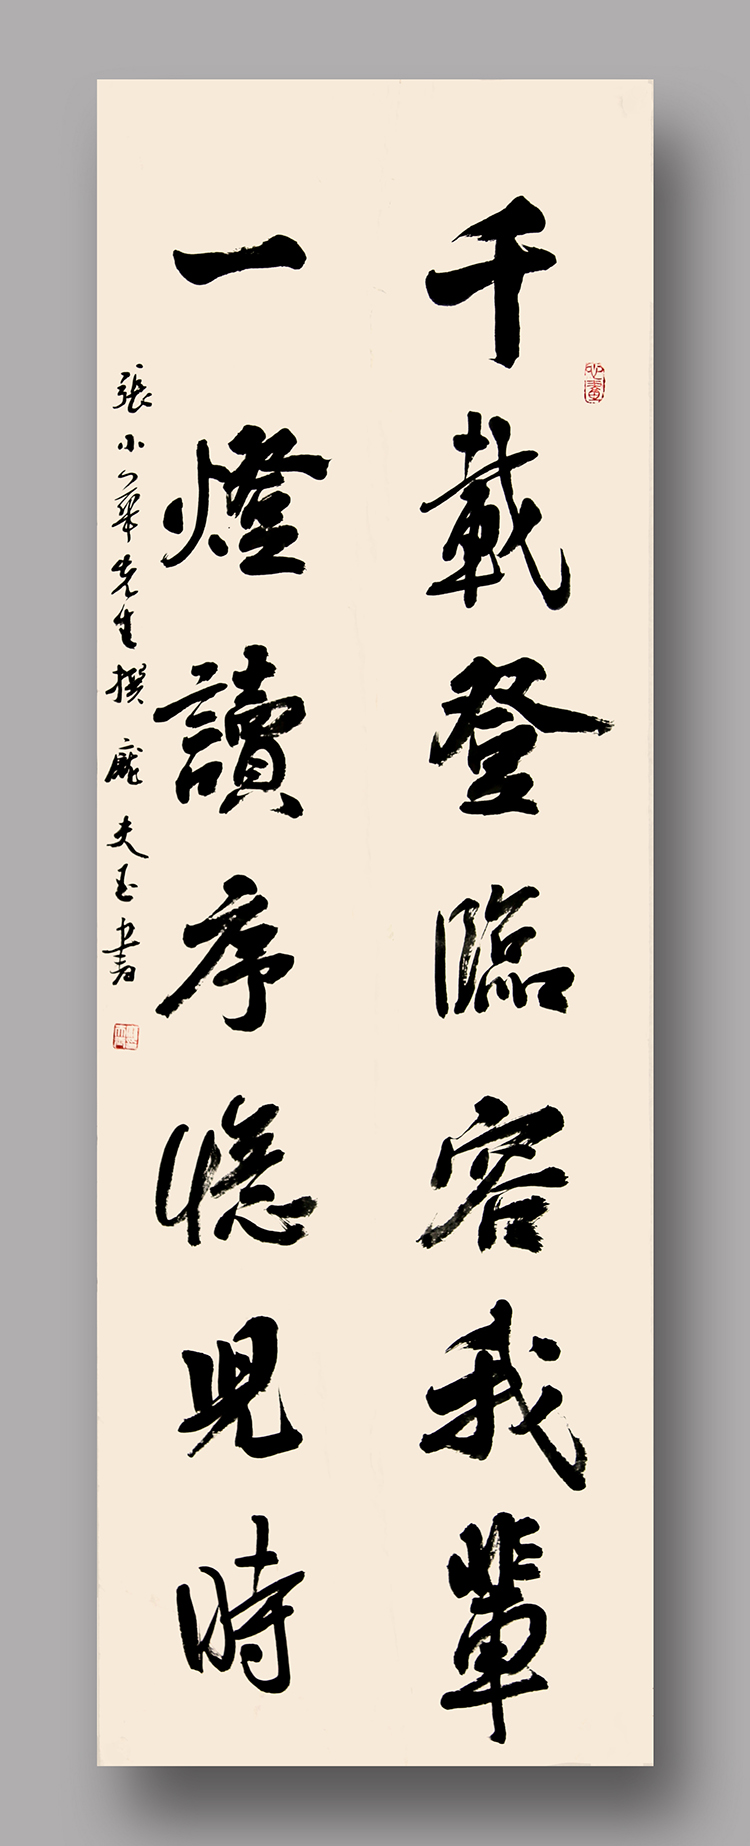 千載登臨容我輩
一燈讀序憶兒時
張小華先生撰 龐夫玉書